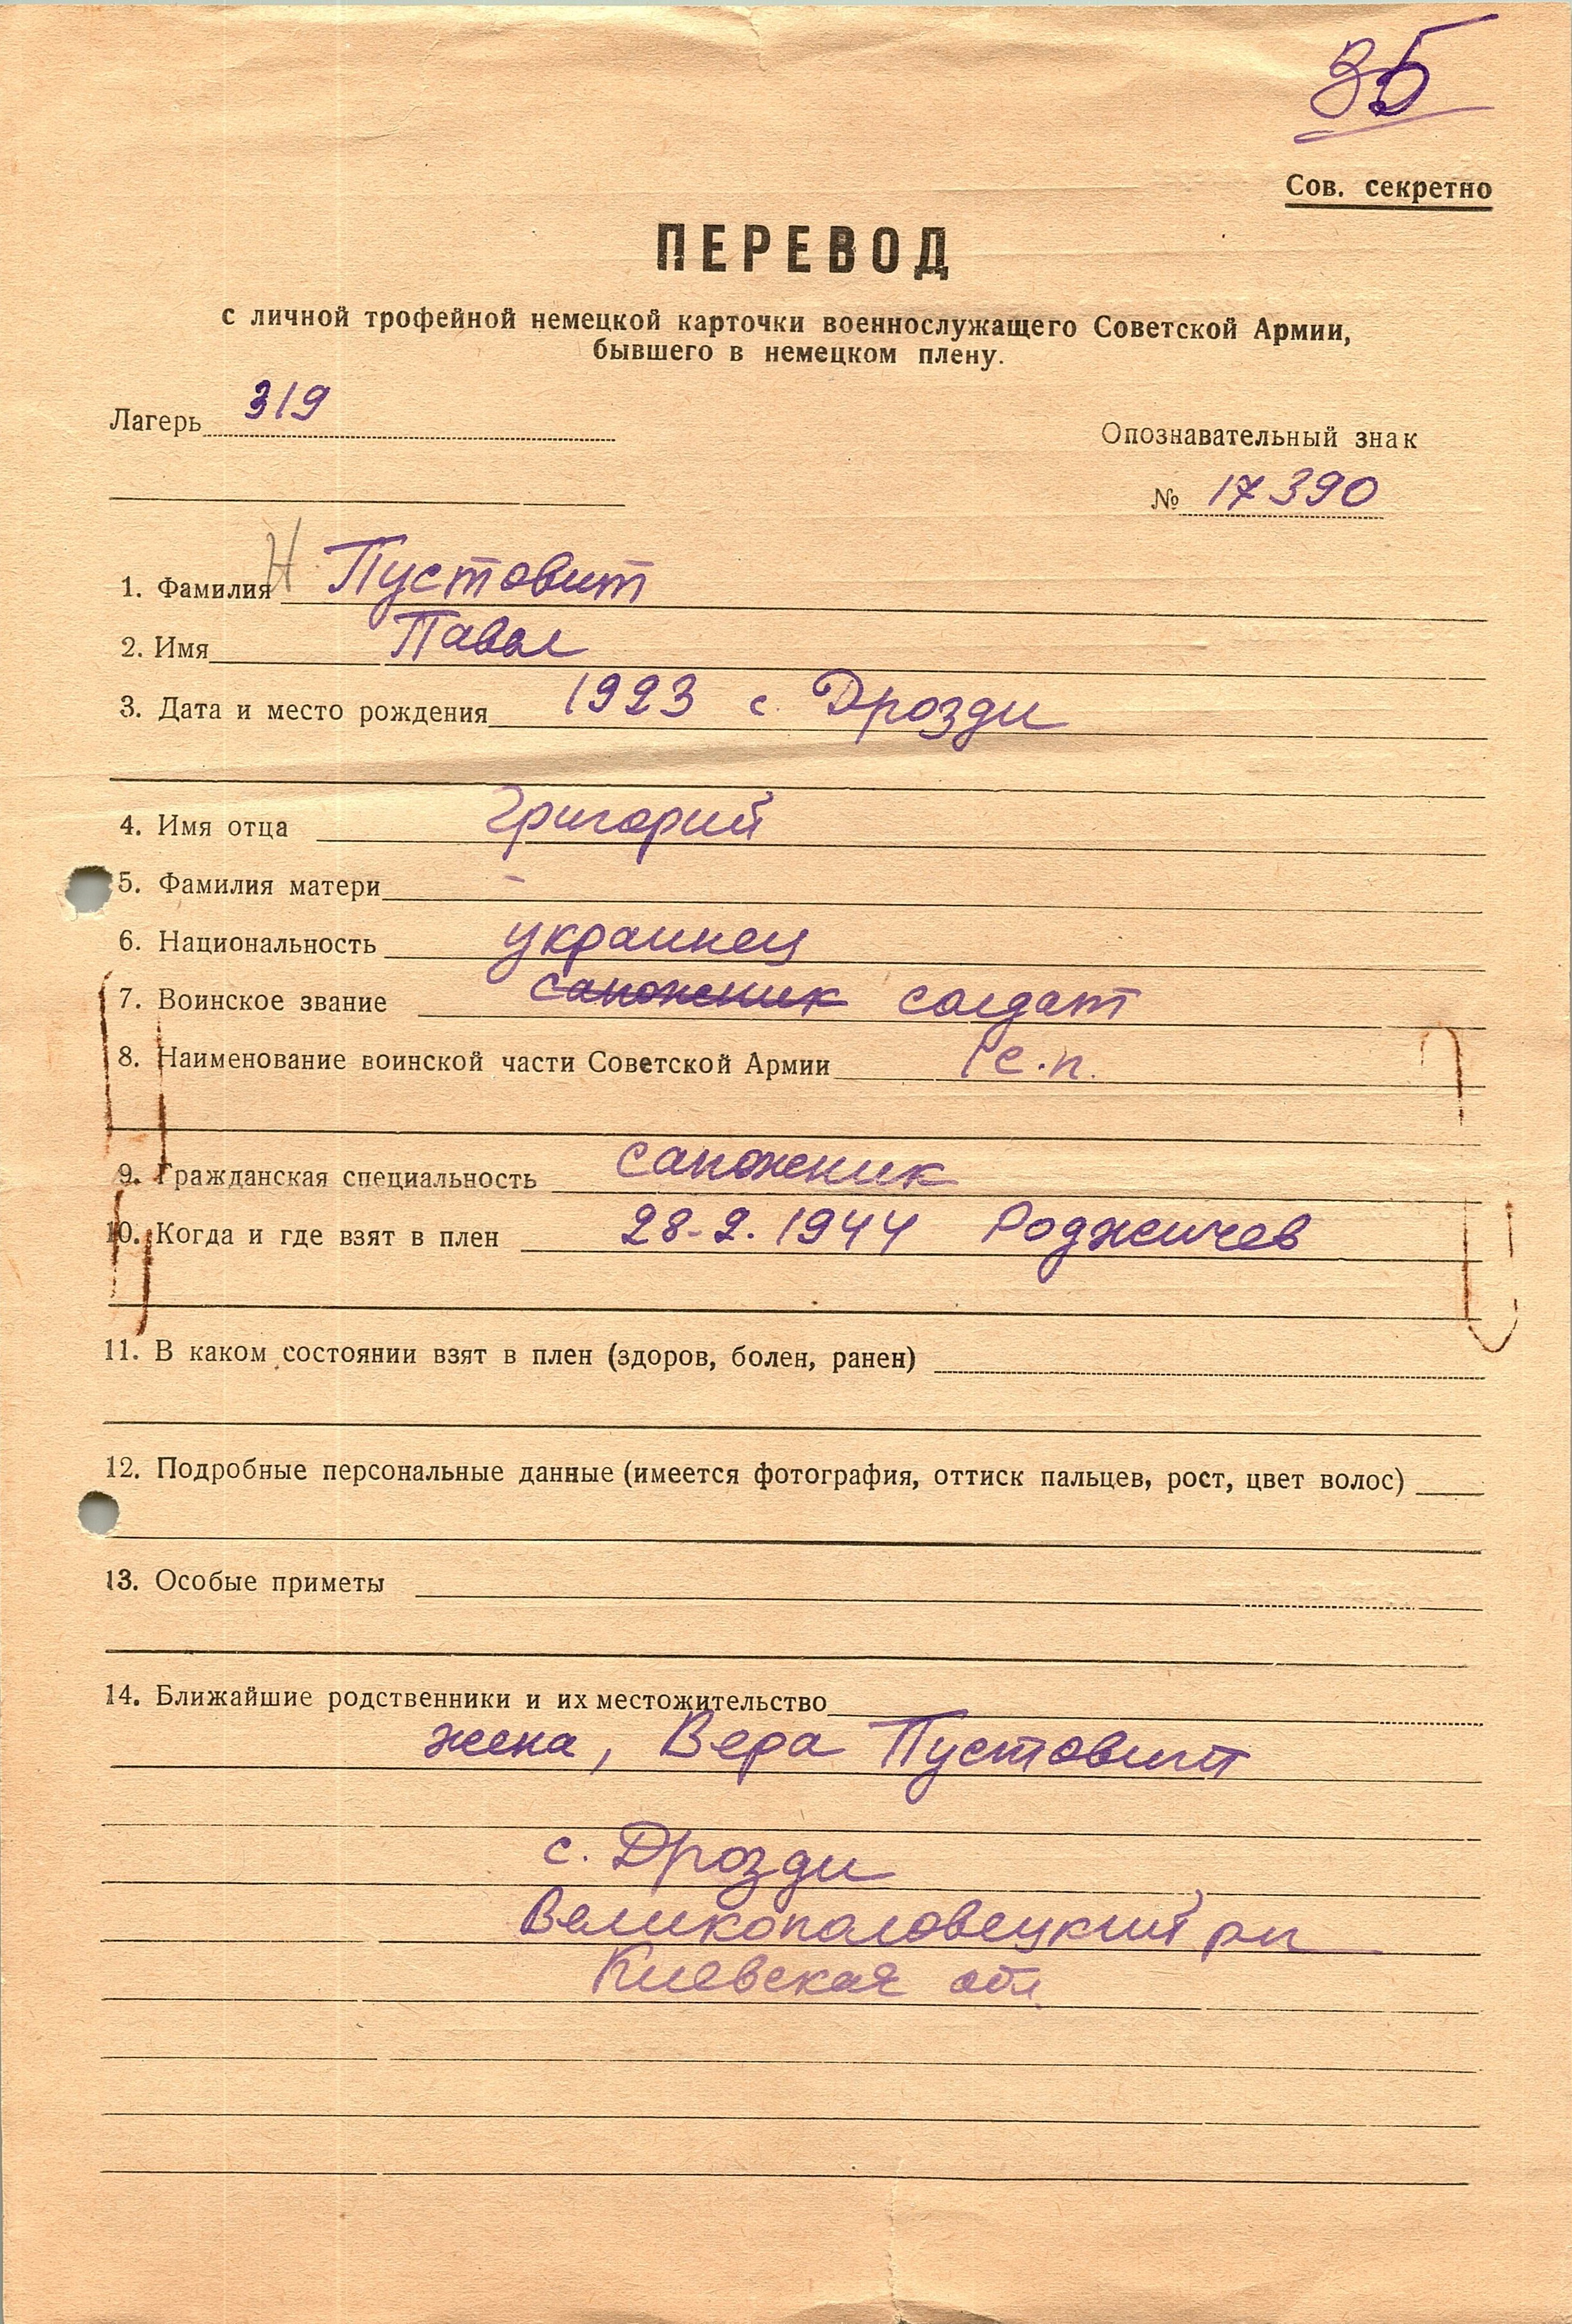 35
Сов. секретно
ПЕРЕВОД
с личной трофейной немецкой карточки военнослужащего Советской Армии,
бывшего в немецком плену.
Лагерь 319
Опознавательный знак
№ 17390
Н.
1. Фамилия Пустовит
2. Имя Павел
3. Дата и место рождения 1923 с. Дрозди
4. Имя отца Григорий
5. Фамилия матери –
6. Национальность украинец
7. Воинское звание сапожник солдат
8. Наименование воинской части Советской Армии 1 с.п.
9. Гражданская специальность сапожник
10. Когда и где взят в плен 28-2.1944 Роджичев
11. В каком состоянии взят в плен (здоров, болен, ранен)
12. Подробные персональные данные (имеется фотография, оттиск пальцев, рост, цвет волос)
13. Особые приметы
14. Ближайшие родственники и их местожительство
жена, Вера Пустовит
с. Дрозди
Великополовецкий рн
Киевская обл.